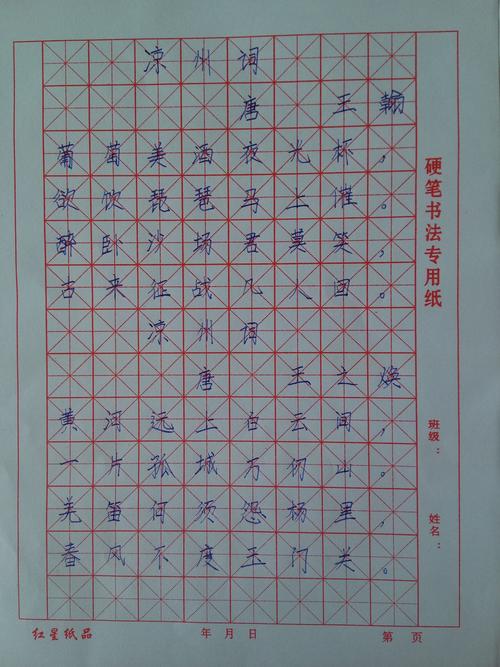 凉州词
唐 王翰
葡萄美酒夜光杯，
欲饮琵琶马上催。
醉卧沙场君莫笑，
古来征战风人回。
凉州词
唐 王之焕
黄河远上白云间，
一片孤城万仞山。
羌笛何须怨杨里，
春风不度玉门关。
硬笔书法专用纸
班级：
姓名：
红星纸品 年月日 第 页